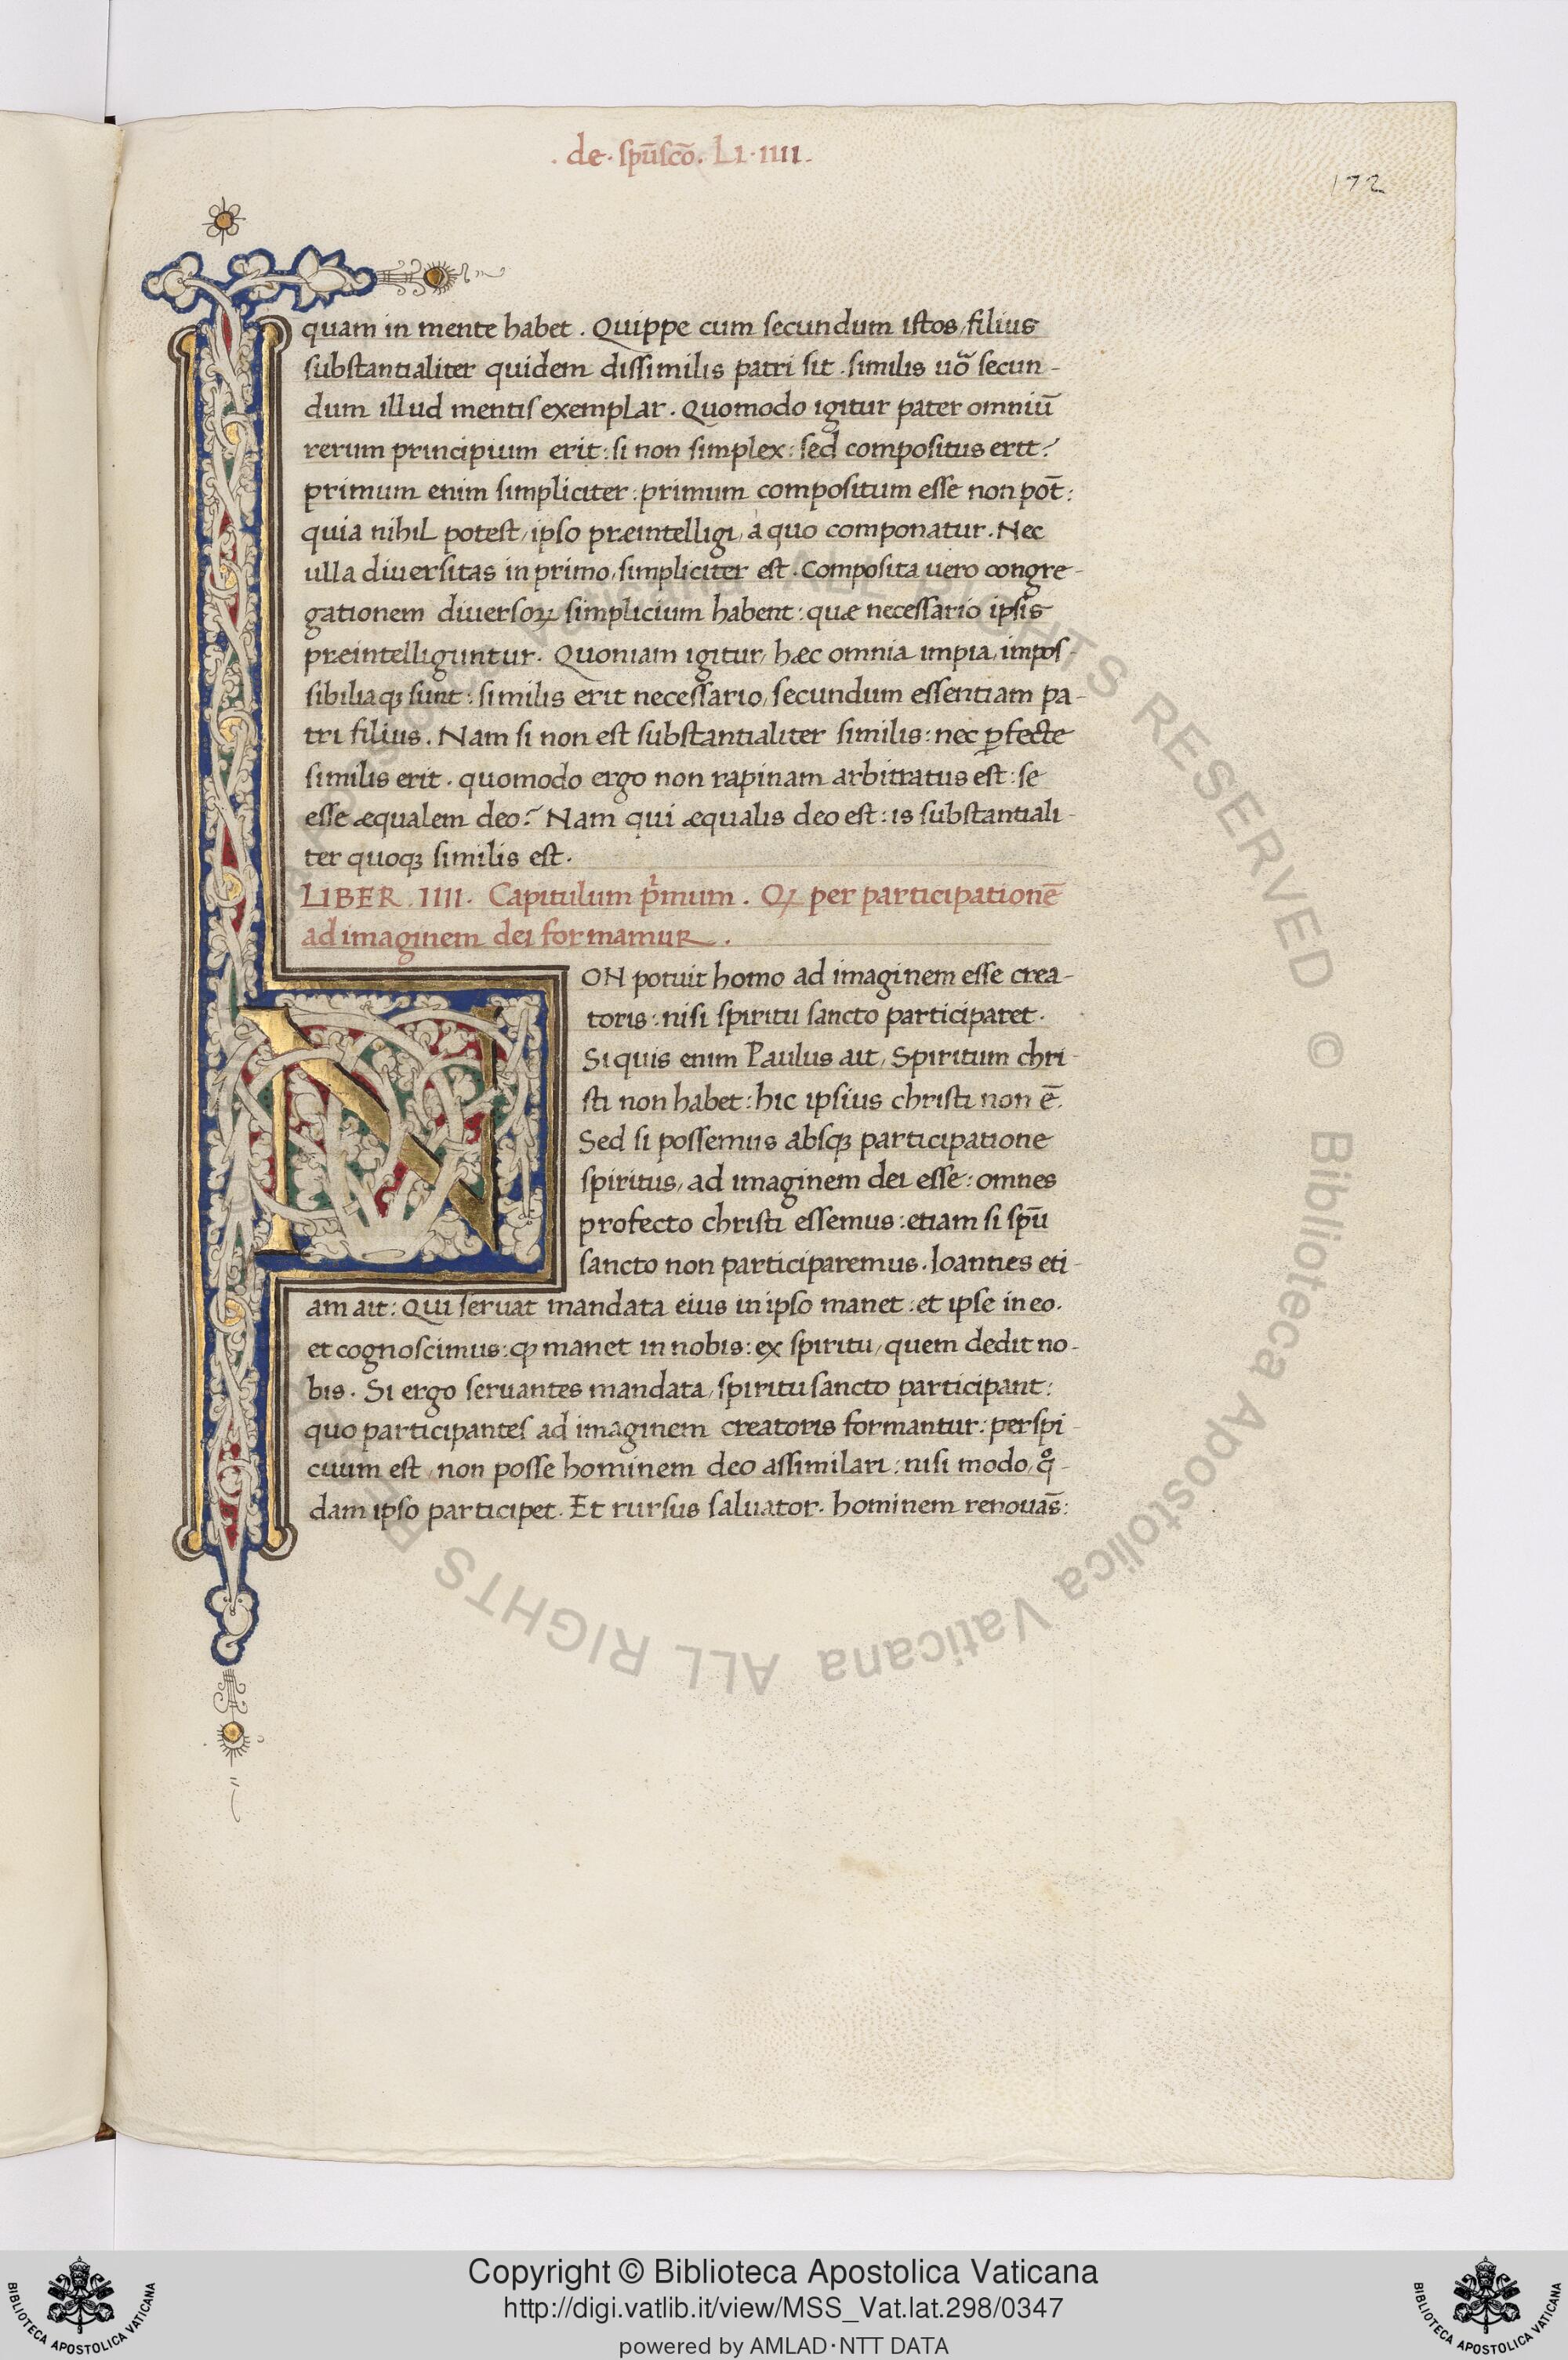 . de . sp̄usc̄o . LI . IIII .
172
quam in mente habet . Quippe cum secundum istos, filius
substantialiter quidem dissimilis patri sit . similis uõ secun-
dum illud mentis exemplar . Quomodo igitur pater omniū
rerum principium erit : si non simplex : sed compositus erit ?
primum enim simpliciter : primum compositum esse non pot̄ :
quia nihil potest, ipso præintelligi, a quo componatur . Nec
ulla diuersitas in primo, simpliciter est . Composita uero congre-
gationem diuersoꝝ simplicium habent : quæ necessario ipsis
præintelliguntur . Quoniam igitur, hæc omnia impia, impos-
sibiliaqꝫ sunt : similis erit necessario, secundum essentiam pa-
tri filius . Nam si non est substantialiter similis : nec ꝑfecte
similis erit . quomodo ergo non rapinam arbitratus est : se
esse æqualem deo ? Nam qui æqualis deo est : is substantiali-
ter quoqꝫ similis est .
LIBER . IIII . Capitulum pͥmum . Qꝫ per participationē
ad imaginem dei formamur .
NON potuit homo ad imaginem esse crea-
toris : nisi spiritu sancto participaret .
Si quis enim Paulus ait, Spiritum chri-
sti non habet : hic ipsius christi non ē .
Sed si possemus absqꝫ participatione
spiritus, ad imaginem dei esse : omnes
profecto christi essemus : etiam si spū
sancto non participaremus . Ioannes eti-
am ait : Qui seruat mandata eius in ipso manet : et ipse in eo .
et cognoscimus : ꝙ manet in nobis : ex spiritu, quem dedit no-
bis . Si ergo seruantes mandata, spiritu sancto participant :
quo participantes ad imaginem creatoris formantur : perspi-
cuum est, non posse hominem deo assimilari : nisi modo, qͦ-
dam ipso participet . Et rursus saluator . hominem renouās :
ALL RIGHTS RESERVED © Biblioteca Apostolica Vaticana ALL RIGHTS RESERVED
Copyright © Biblioteca Apostolica Vaticana
http://digi.vatlib.it/view/MSS_Vat.lat.298/0347
powered by AMLAD·NTT DATA
BIBLIOTECA APOSTOLICA VATICANA
BIBLIOTECA APOSTOLICA VATICANA